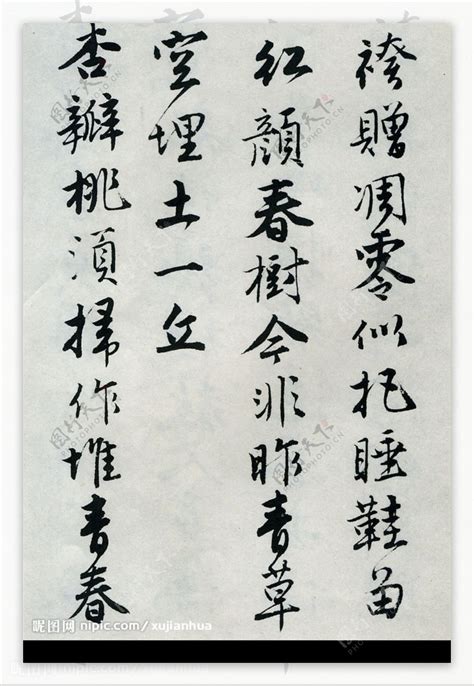 袴贈凋零似把睡鞋留
紅顏春樹今非昨青草
空埋土一丘
杏瓣桃須掃作堆青春
昵图网 nipic.com/xujianhua